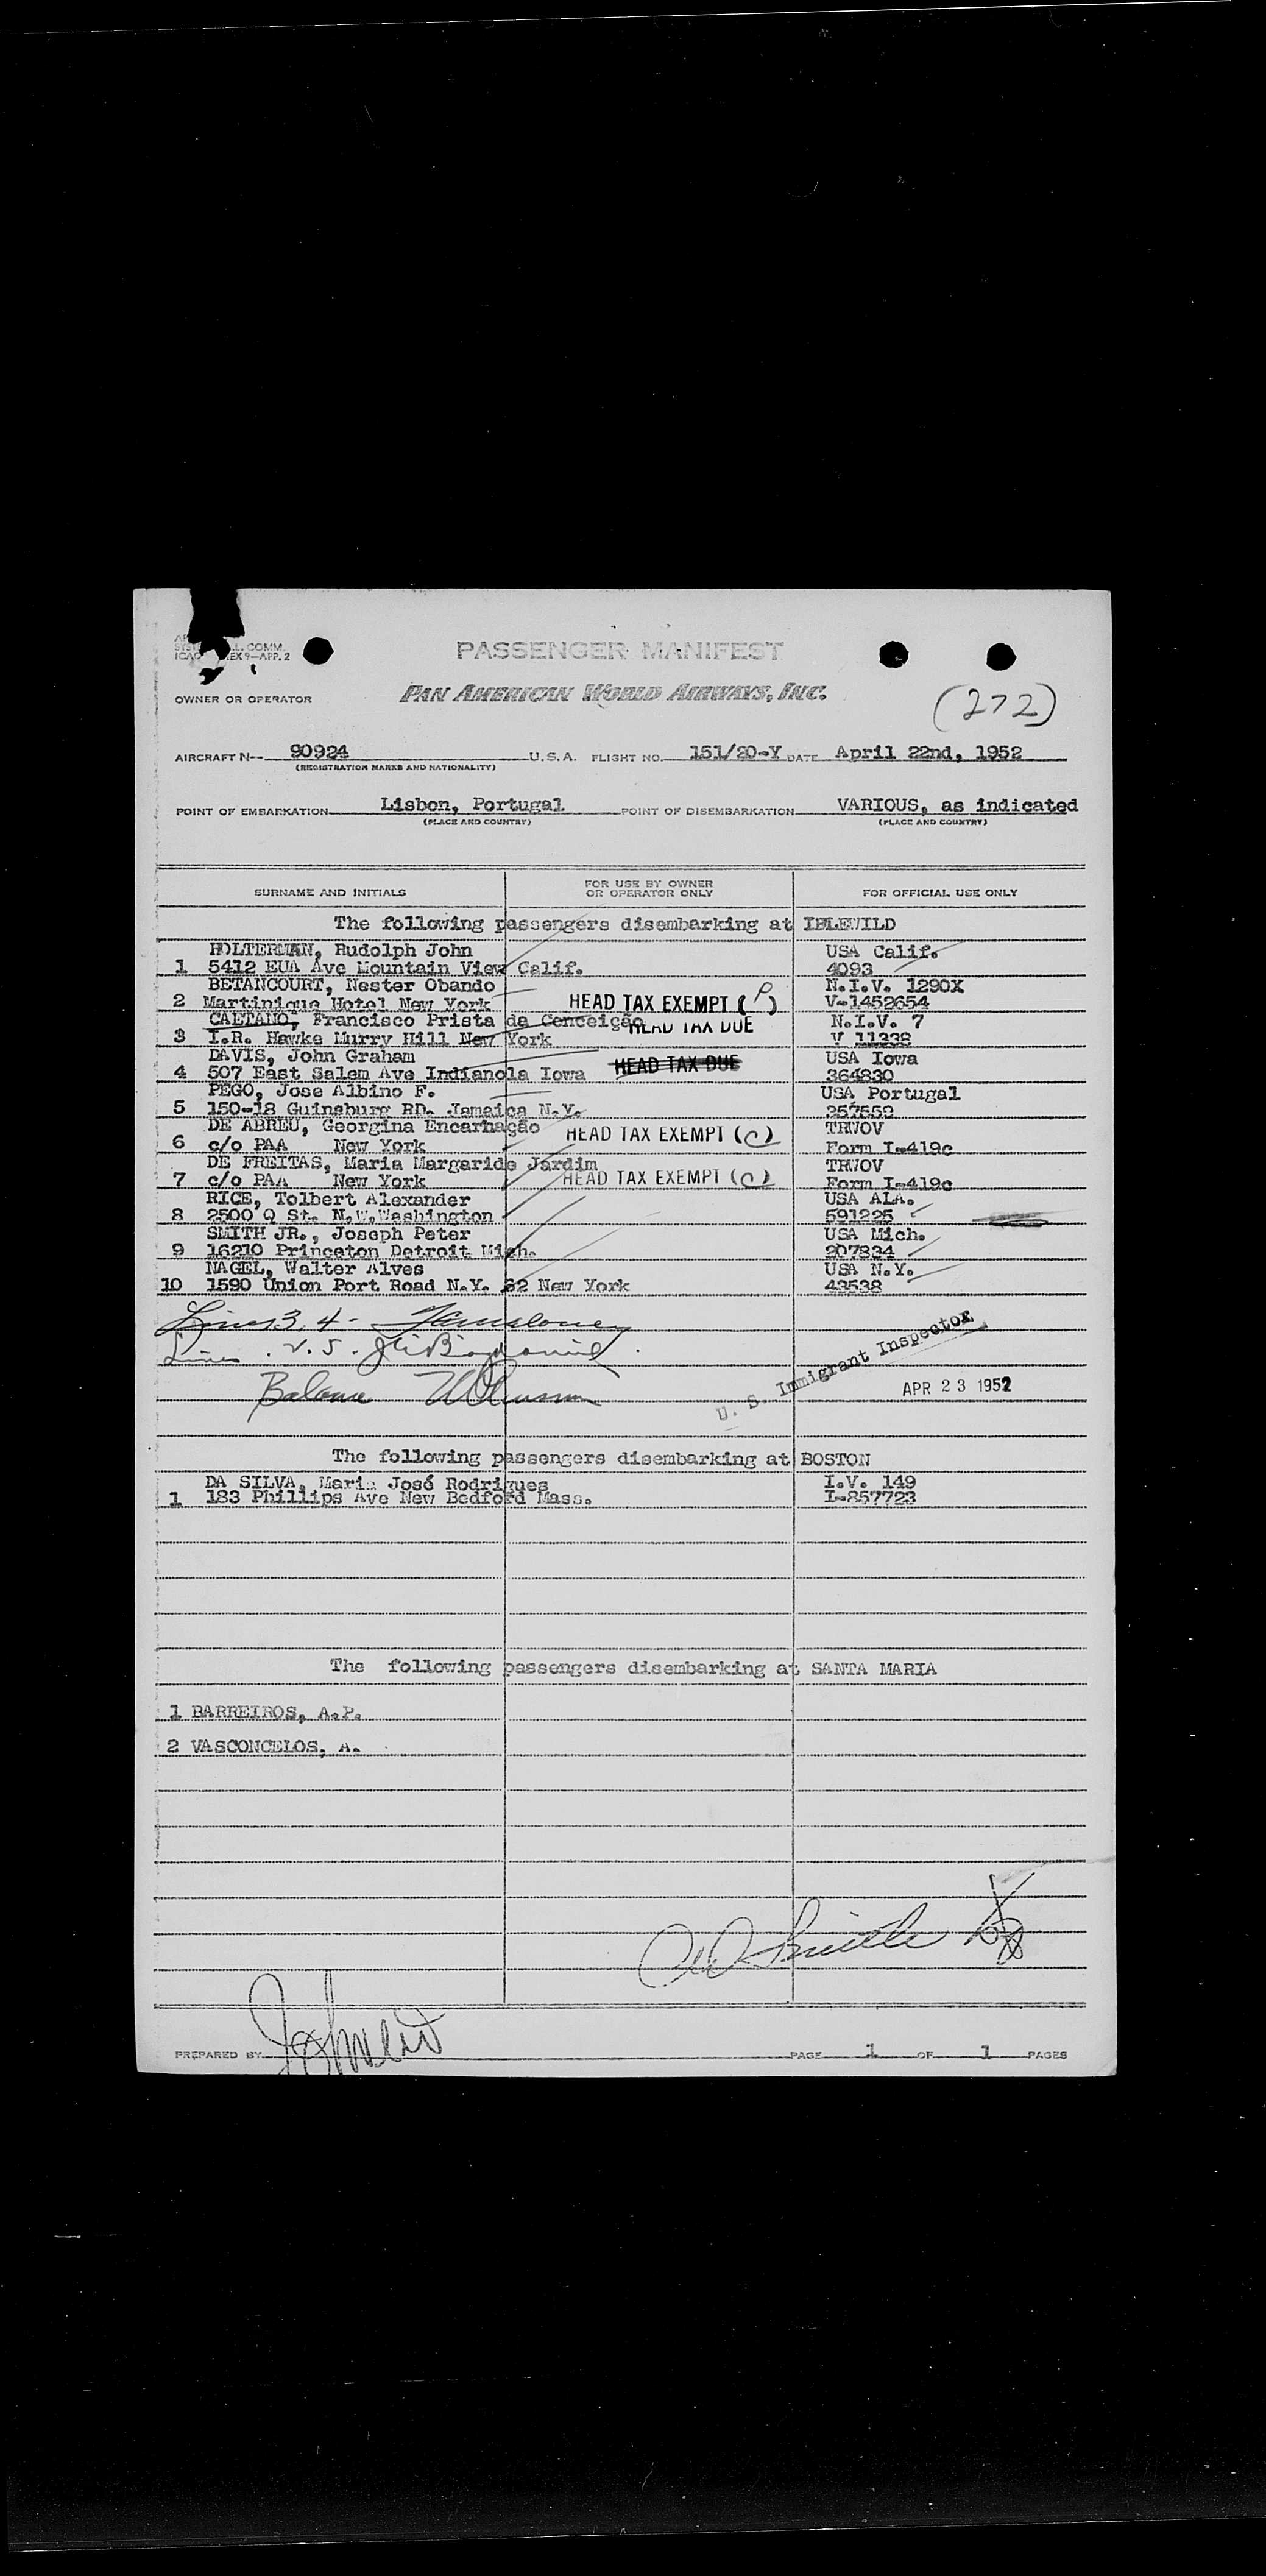 PASSENGER MANIFEST
L. COMM.
EX 9—APP. 2
OWNER OR OPERATOR
PAN AMERICAN WORLD AIRWAYS, INC.
(272)
AIRCRAFT N-- 90924 U.S.A. FLIGHT NO. 151/20-Y DATE April 22nd, 1952
(REGISTRATION MARKS AND NATIONALITY)
POINT OF EMBARKATION Lisbon, Portugal POINT OF DISEMBARKATION VARIOUS, as indicated
(PLACE AND COUNTRY) (PLACE AND COUNTRY)
SURNAME AND INITIALS FOR USE BY OWNER OR OPERATOR ONLY FOR OFFICIAL USE ONLY
The following passengers disembarking at IDLEWILD
HOLTERMAN, Rudolph John USA Calif.
1 5412 EUA Ave Mountain View Calif. 4093
BETANCOURT, Nester Obando N.I.V. 1290X
2 Martinique Hotel New York HEAD TAX EXEMPT (P) V-1452654
CAETANO, Francisco Prista da Conceição N.I.V. 7
3 I.R. Hawke Murry Hill New York HEAD TAX DUE V 11338
DAVIS, John Graham USA Iowa
4 507 East Salem Ave Indianola Iowa HEAD TAX DUE 364830
PEGO, Jose Albino F. USA Portugal
5 150-18 Guinsburg RD. Jamaica N.Y. 257559
DE ABREU, Georgina Encarnação TRWOV
6 c/o PAA New York HEAD TAX EXEMPT (C) Form I-419c
DE FREITAS, Maria Margarida Jardim TRWOV
7 c/o PAA New York HEAD TAX EXEMPT (C) Form I-419c
RICE, Tolbert Alexander USA ALA.
8 2500 Q St. N.W. Washington 591225
SMITH JR., Joseph Peter USA Mich.
9 16210 Princeton Detroit Mich. 207834
NAGEL, Walter Alves USA N.Y.
10 1590 Union Port Road N.Y. 62 New York 43538
Lines 3, 4 -
Lines
U. S. Immigrant Inspector
APR 23 1952
The following passengers disembarking at BOSTON
DA SILVA, Maria José Rodrigues I.V. 149
1 183 Phillips Ave New Bedford Mass. I-857723
The following passengers disembarking at SANTA MARIA
1 BARREIROS, A.P.
2 VASCONCELOS, A.
PREPARED BY PAGE 1 OF 1 PAGES